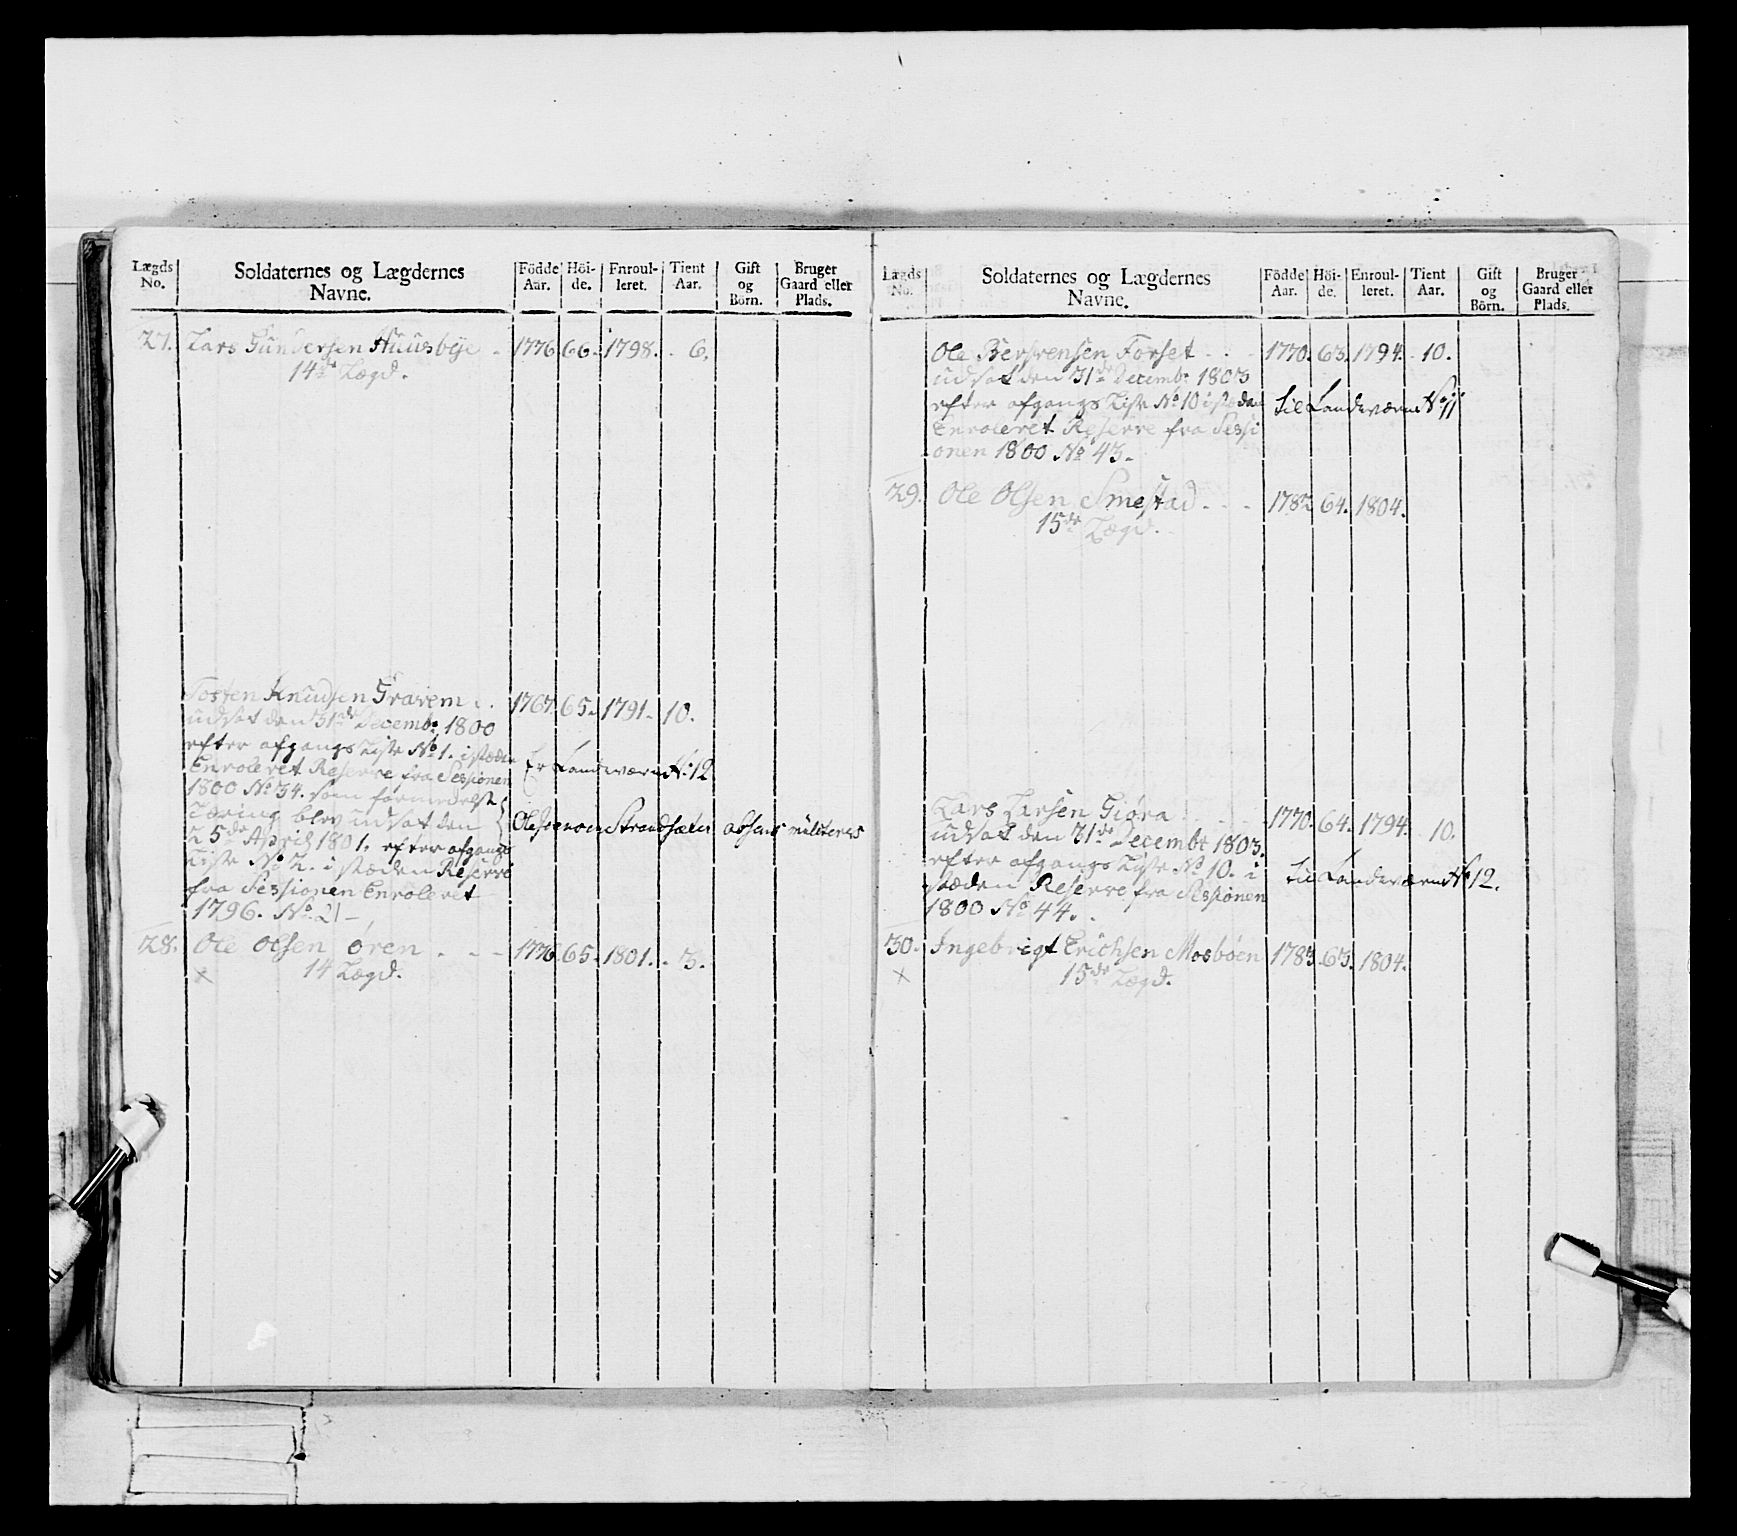 Lægds No. Soldaternes og Lægdernes Navne. Födde Aar. Höi-de. Enroul-leret. Tient Aar. Gift og Börn. Bruger Gaard eller Plads.
27. Lars Gundersen Huusbye - 1776. 66. 1798. - 6.
14de Lægd.
Tosten Knudsen Gravem . . 1767. 65. 1791. 10.
udsat den 31de Decembr. 1800
efter afgangs Liste No 1. i stæden
Enroleret Reserve fra Sessionen Er Landeværn No 12
1800 No 34. som formedelst
Tæring blev udsat den Ole Strandsæter
25de April 1801. efter afgangs
Liste No 2. i stæden Reserve
fra Sessionen Enroleret
1796. No 21 -
28. Ole Olsen Øren . - - 1776. 65. 1801. - 3.
x 14 Lægd.
Lægds No. Soldaternes og Lægdernes Navne. Födde Aar. Höi-de. Enroul-leret. Tient Aar. Gift og Börn. Bruger Gaard eller Plads.
Ole Forset . . - 1770. 63. 1794. 10.
udsat den 31de Decembr. 1803
efter afgangs Liste No 10 i stæden til Landeværn No 11
Enroleret Reserve fra Sessi
onen 1800 No 43.
29. Ole Olsen Smestad . . - 64. 1804.
15de Lægd.
Lars Larsen Giøra . . . 1770. 64. 1794. 10.
udsat den 31de Decembr 1803.
efter afgangs Liste No 10. i til Landeværn No 12.
stæden Reserve fra Sessionen
1800 No 44.
30. Ingebrigt Erichsen Mosbøen 1783. 63. 1804.
x 15de Lægd.